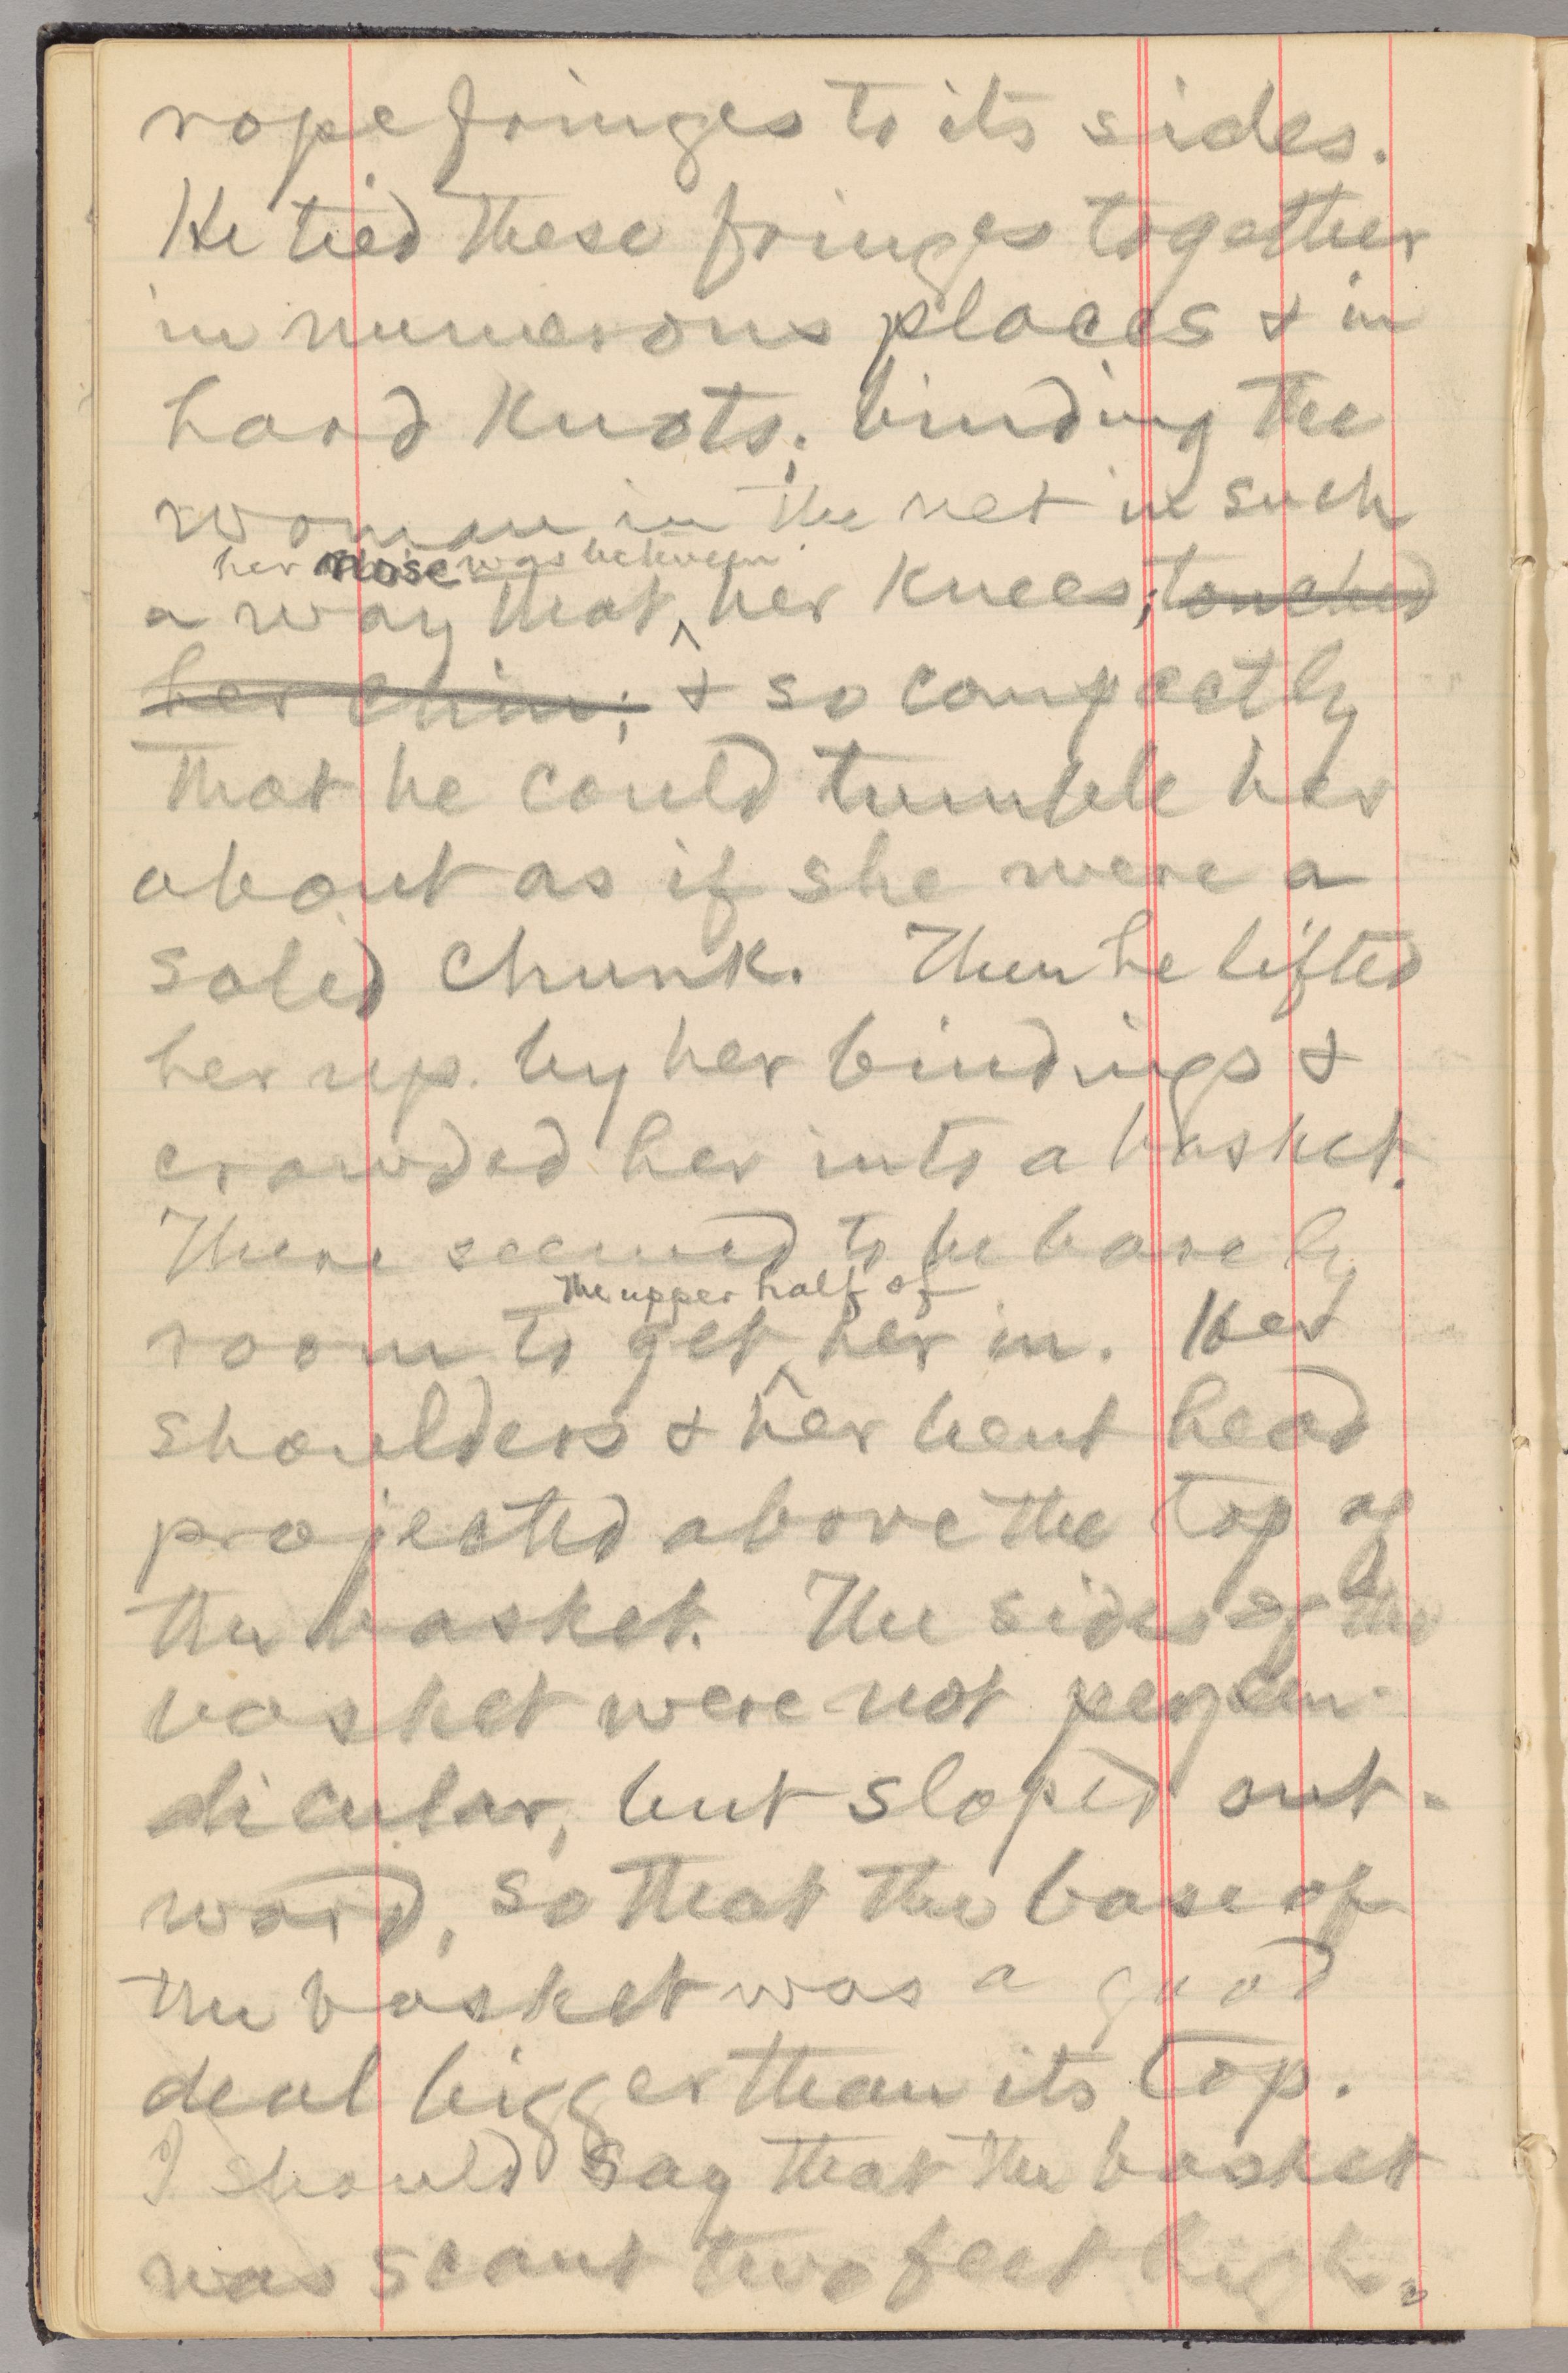 rope fringes to its sides.
He tied these fringes together
in numerous places & in
hard knots; binding the
woman in the net in such
her nose was between
a way that ^ her knees; touched
her chin; & so compactly
that he could tumble her
about as if she were a
solid chunk. Then he lifted
her up by her bindings &
crowded her into a basket.
There seemed to be barely
the upper half of
room to get ^ her in. Her
shoulders & her bent head
projected above the top of
the basket. The sides of the
basket were not perpen-
dicular, but sloped out-
ward, so that the base of
the basket was a good
deal bigger than its top.
I should say that the basket
was scant two feet high.